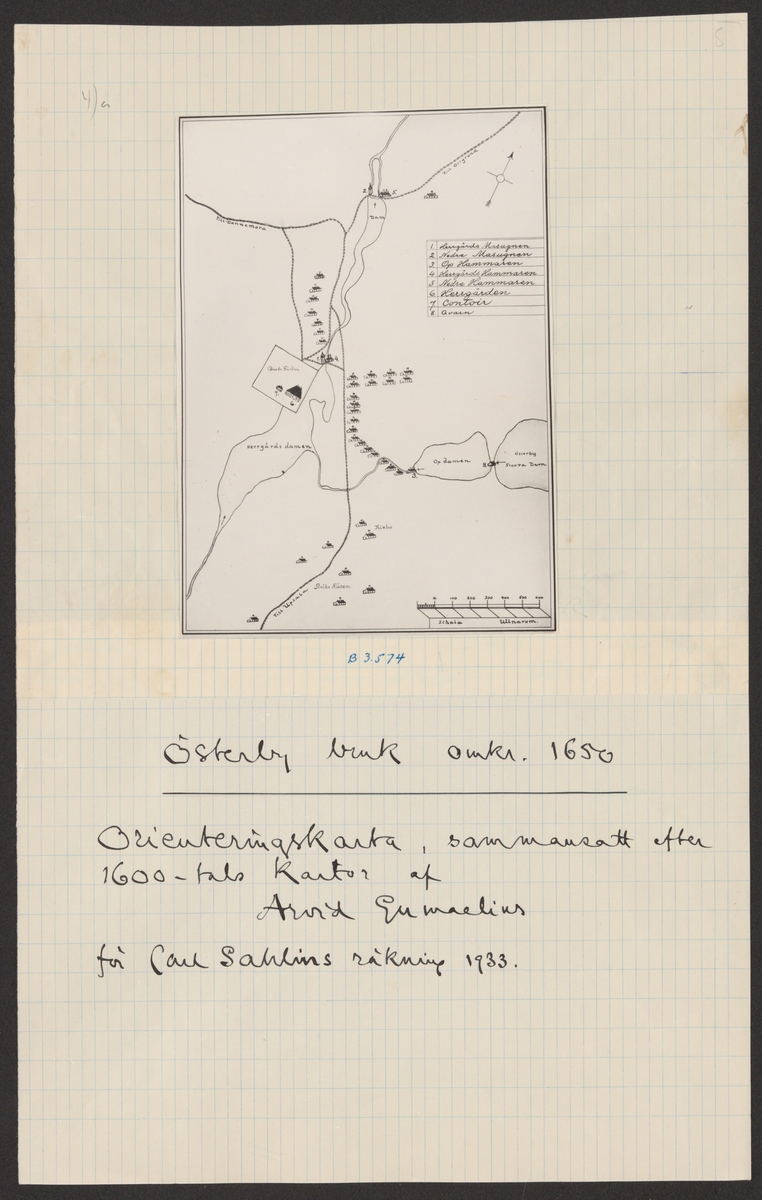 5
4)a
Till Dannemora
Till Gizlund
2
5
Dam
1 Herrgårds Masugnen
2 Nedre Masugnen
3 Op Hammaren
4 Herrgårds Hammaren
5 Nedre Hammaren
6 Herrgården
7 Contoir
8 Qvarn
1 4
7
6
Herrgårds dammen
Op dammen
Österby
Stoora Dam
8
3
Till Upsala
0 100 200 300 400 500 600
Skala Ullnarum
B 3.574
Österby bruk omkr. 1650
Orienteringskarta, sammansatt efter
1600-tals kartor af
Arvid Gumaelius
för Carl Sahlins räkning 1933.